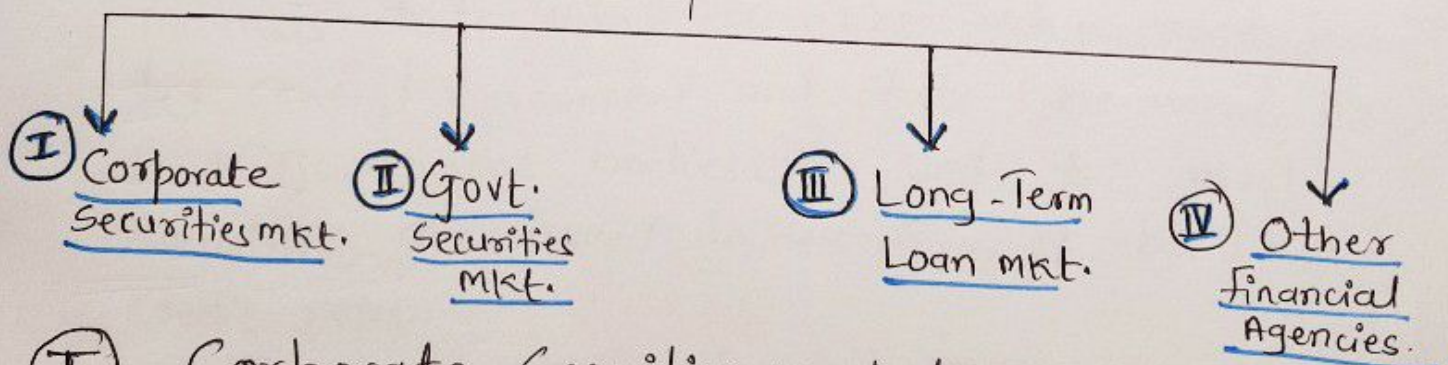 I Corporate
Securities mkt.
II Govt.
Securities
mkt.
III Long-Term
Loan mkt.
IV Other
financial
Agencies.
I Corporate Securities